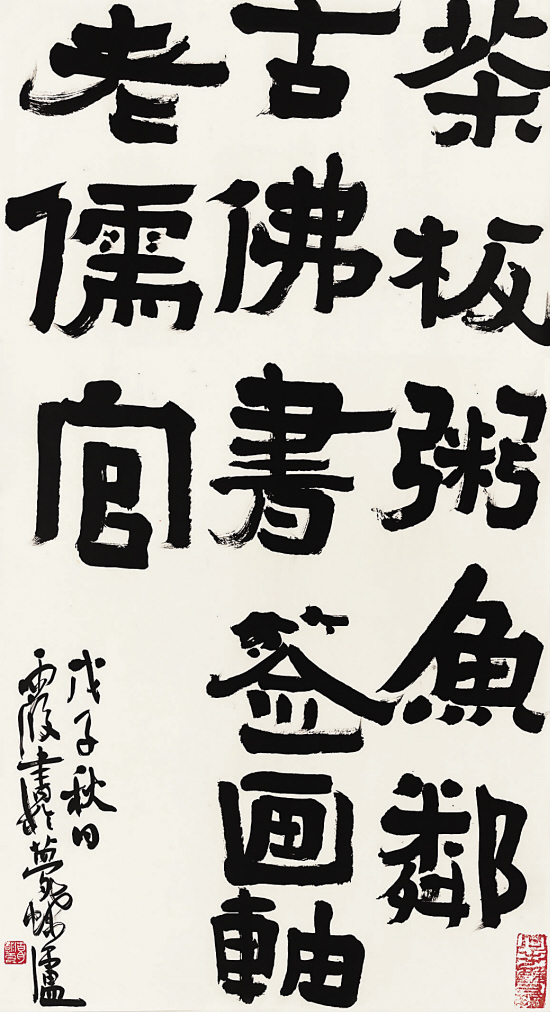 茶板粥魚鄰
古佛書签画軸
老儒官
戊子秋日
霞書於夢蝶廬